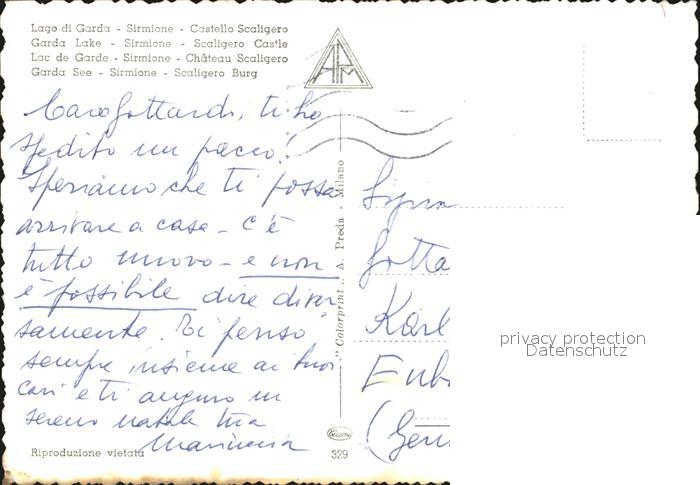 Lago di Garda - Sirmione - Castello Scaligero
Garda Lake - Sirmione - Scaligero Castle
Lac de Garde - Sirmione - Château Scaligero
Garda See - Sirmione - Scaligero Burg
APM
Caro Gottardi, ti ho
spedito un pacco!
Speriamo che ti possa
arrivare a casa - c'è
tutto nuovo - e non
è possibile dire diver
samente. Ti penso
sempre, insieme ai tuoi
cari e ti auguro un
sereno natale tua
Riproduzione vietata
"Colorprint" A. Preda - Milano
329
Sign
Gotta
Karl
(Ger
privacy protection
Datenschutz